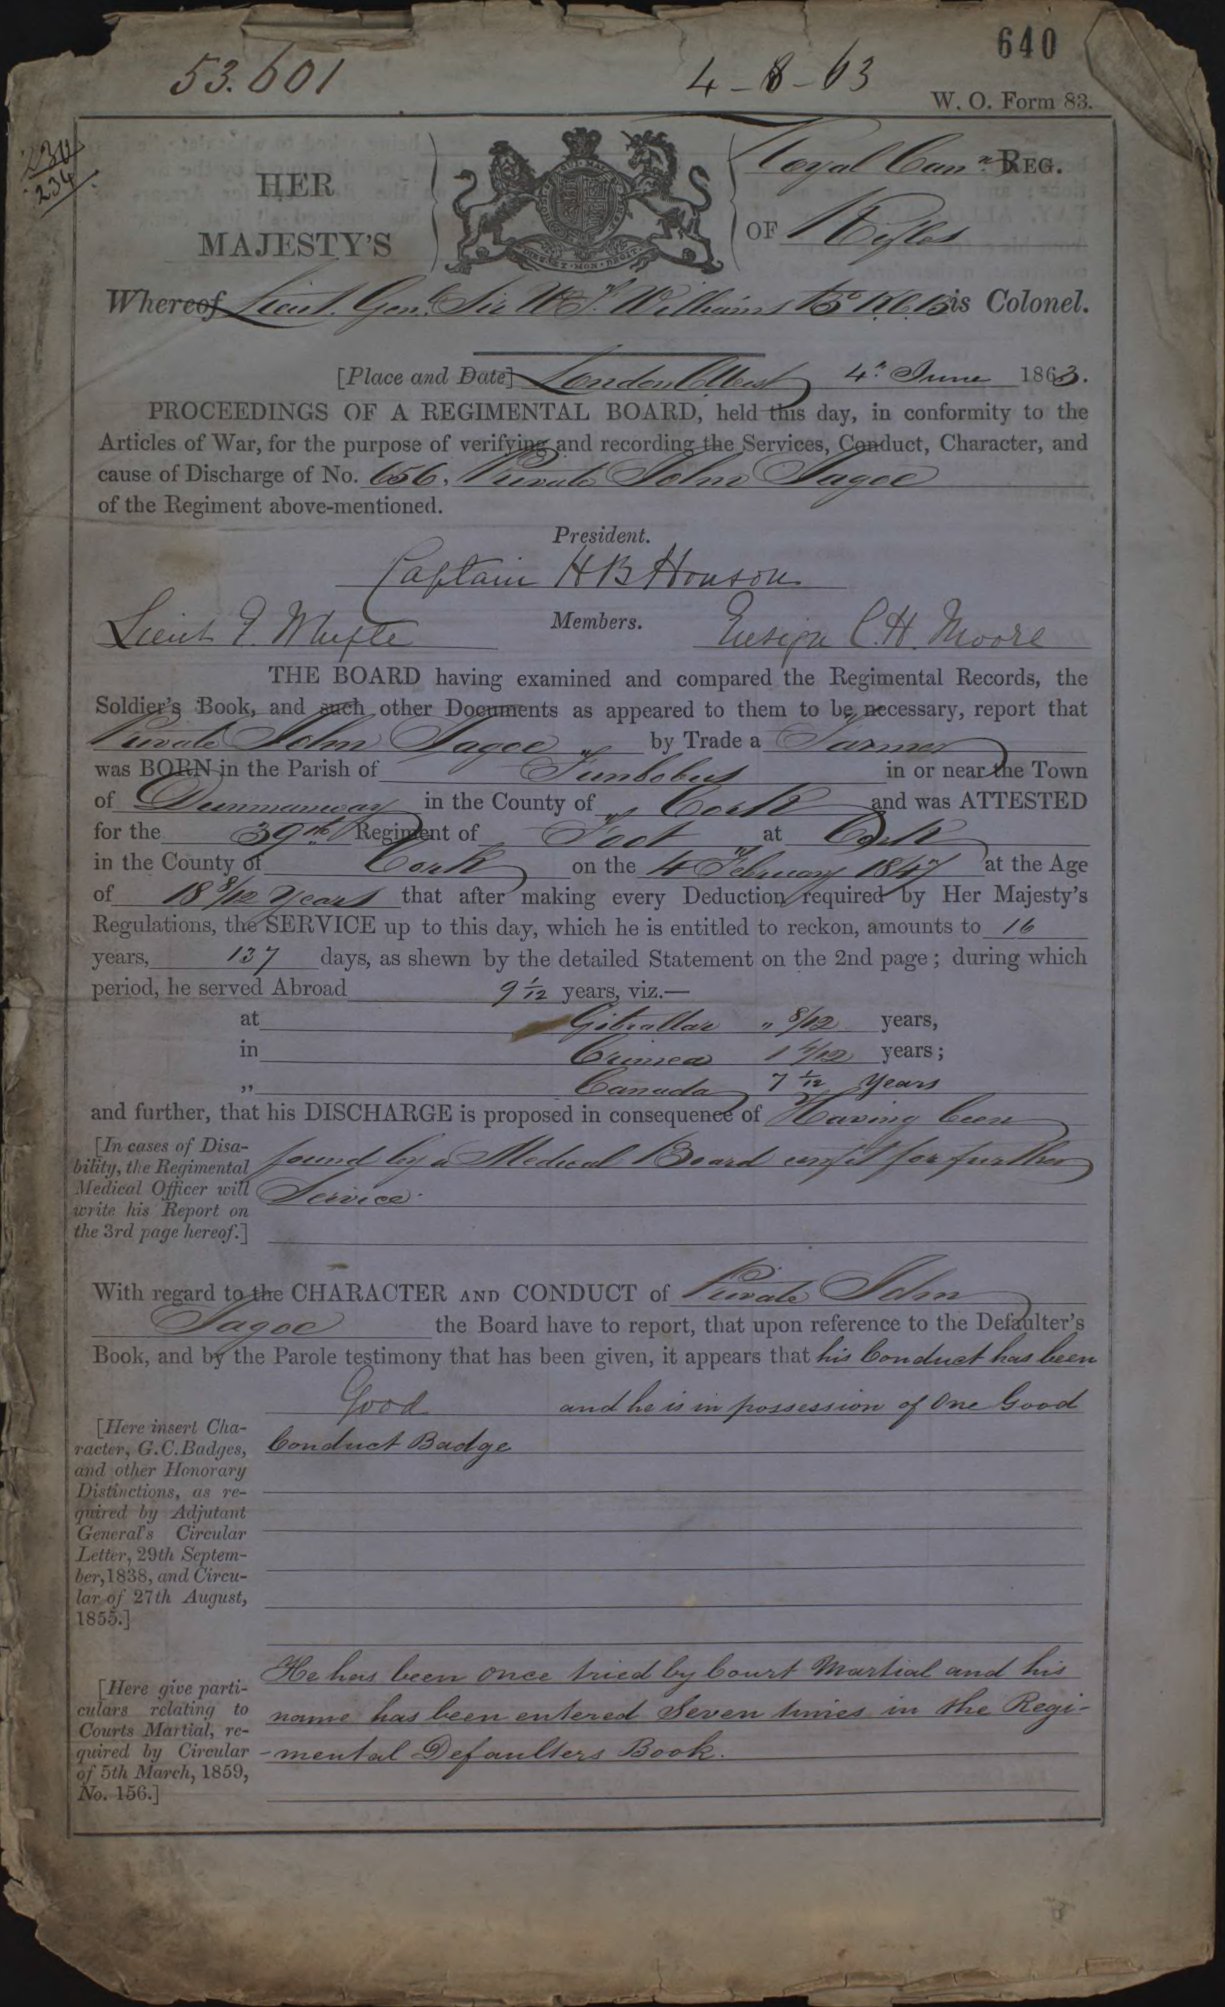 640
53.601
4-8-63
W. O. Form 83.
234
HER
MAJESTY'S
Royal Can.n REG.
OF Rifles
Whereof Lieut. Genl. Sir W. F. Williams Bt K.C.B is Colonel.
[Place and Date] London C. West 4th June 1863.
PROCEEDINGS OF A REGIMENTAL BOARD, held this day, in conformity to the
Articles of War, for the purpose of verifying and recording the Services, Conduct, Character, and
cause of Discharge of No. 656. Private John Sagoe
of the Regiment above-mentioned.
President.
Captain H B Honson
Lieut F. Whyte
Members.
Ensign C. H. Moore
THE BOARD having examined and compared the Regimental Records, the
Soldier's Book, and such other Documents as appeared to them to be necessary, report that
Private John Sagoe by Trade a Farmer
was BORN in the Parish of Funlobus in or near the Town
of Dunmanway in the County of Cork and was ATTESTED
for the 39th Regiment of Foot at Cork
in the County of Cork on the 4 February 1847 at the Age
of 18 8/12 Years that after making every Deduction required by Her Majesty's
Regulations, the SERVICE up to this day, which he is entitled to reckon, amounts to 16
years, 137 days, as shewn by the detailed Statement on the 2nd page; during which
period, he served Abroad 9 1/12 years, viz.—
at Gibraltar " 8/12 years,
in Crimea 1 4/12 years;
„ Canada 7 1/12 Years
and further, that his DISCHARGE is proposed in consequence of Having been
[In cases of Disa-
bility, the Regimental
Medical Officer will
write his Report on
the 3rd page hereof.]
found by a Medical Board unfit for further
Service.
With regard to the CHARACTER AND CONDUCT of Private John
Sagoe the Board have to report, that upon reference to the Defaulter's
Book, and by the Parole testimony that has been given, it appears that his Conduct has been
Good and he is in possession of One Good
Conduct Badge
[Here insert Cha-
racter, G.C.Badges,
and other Honorary
Distinctions, as re-
quired by Adjutant
General's Circular
Letter, 29th Septem-
ber,1838, and Circu-
lar of 27th August,
1855.]
He has been once tried by Court Martial and his
name has been entered Seven times in the Regi-
-mental Defaulters Book.
[Here give parti-
culars relating to
Courts Martial, re-
quired by Circular
of 5th March, 1859,
No. 156.]